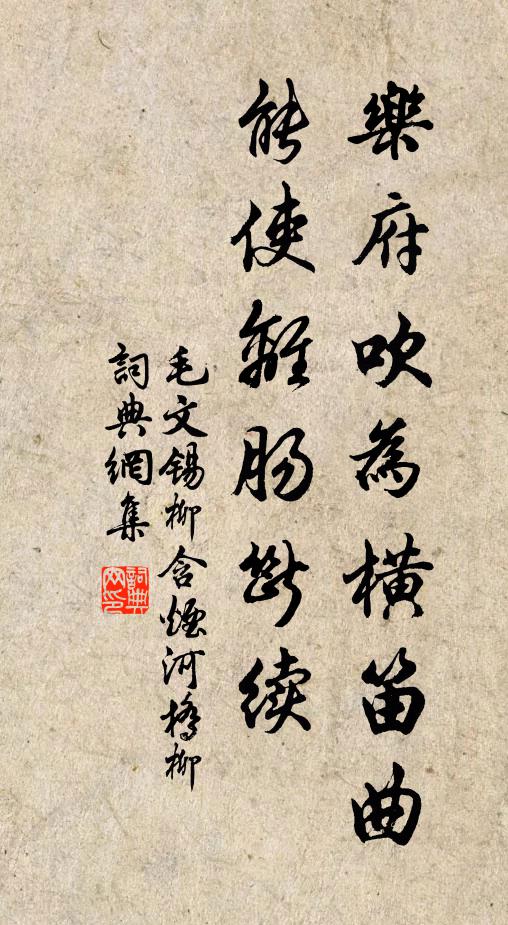 樂府吹為橫笛曲
能使離腸斷续
毛文锡柳含煙河橋柳
詞典網集
詞典网印